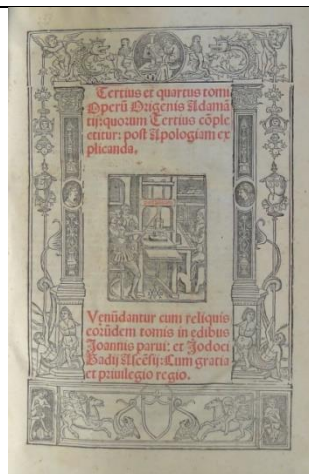 Tertius et quartus tomi
Operũ Origenis Adamã
tij: quorum Tertius cõple
ctitur: post Apologiam ex
plicanda.
Venũdantur cum reliquis
eorũdem tomis in edibus
Joannis parui: et Jodoci
Badij Ascẽsij: Cum gratia
et priuilegio regio.